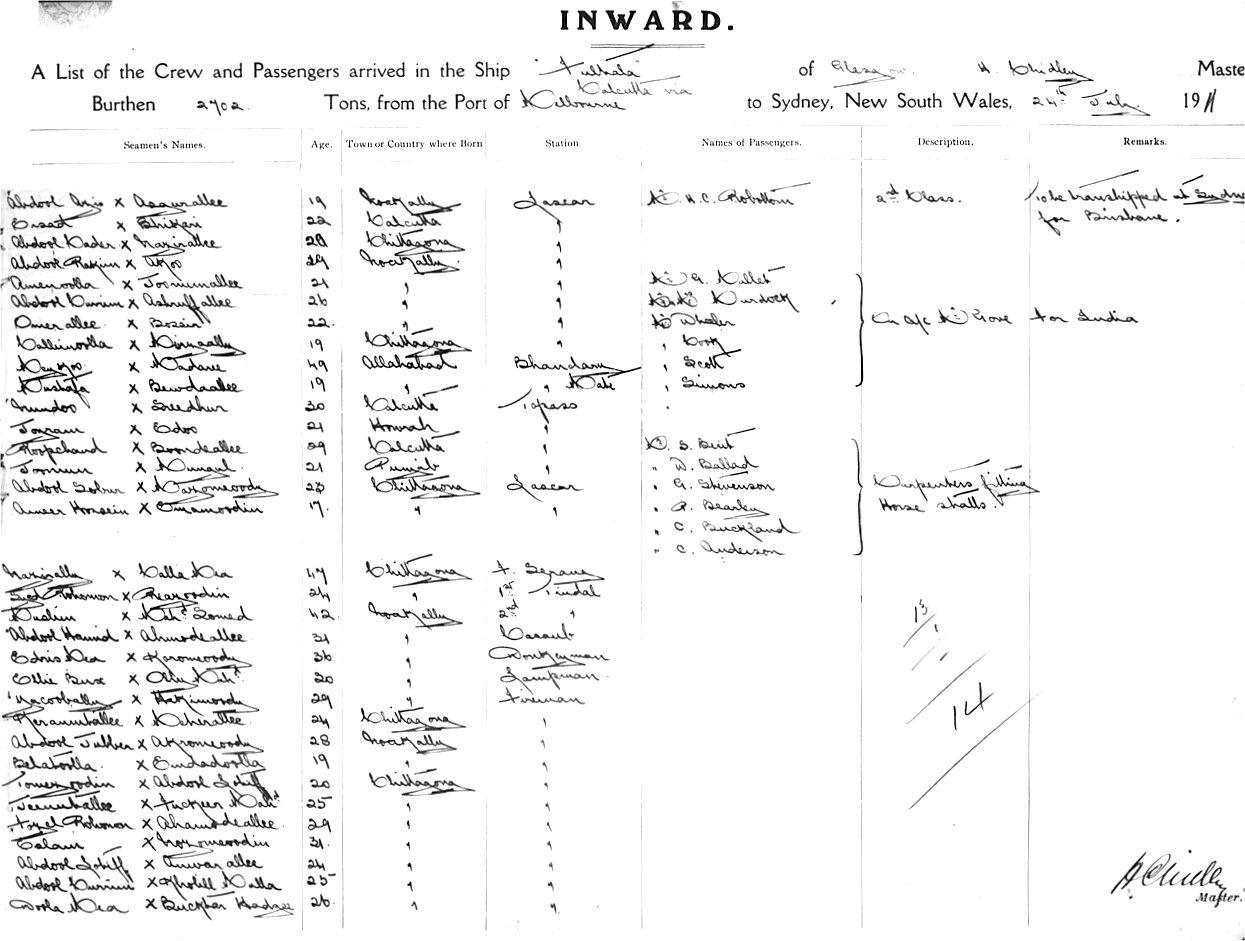 INWARD.
A List of the Crew and Passengers arrived in the Ship "Fultala" of Glasgow. H. Chidley Maste
Calcutta via
Burthen 2702 Tons, from the Port of Melbourne to Sydney, New South Wales, 24th July 1911
Seamen's Names. Age. Town or Country where Born Station. Names of Passengers. Description. Remarks.
Abdool Azis x Asgurallee 19 Noakally Lascar Mr. H.C. Robottom 2nd Class. To be transhipped at Sydne
for Brisbane.
Ersad x Bhikari 22 Calcutta "
Abdool Kader x Nazirallee 20 Chittagong "
Abdool Rakim x 29 Noakally "
x Joomunallee 21 " " Mr. G. Millet
Abdool Currim x Ashruffallee 26 " " Murdock
Omerallee x Bossir 22 " " Mr Wheeler On a/c Mr. Gove for India
x 19 Chittagong " " Cook
x Madarie 49 Allahabad Bhandary " Scott
Mustafa x Bewdaallee 19 " " Mate " Simons
Nundoo x Sreedhur 30 Calcutta Topass
Jonram x Edoo 21 Howrah "
Roopchand x Boondeallee 29 Calcutta " Mr. S. Bent
Joomun x Mungul 21 Punjab " " W. Ballad
Abdool Sobur x 23 Chittagong Lascar " G. Stevenson Carpenters fitting
Ameer Hossein x Emamoodin 17 " " " R. Bearley Horse stalls.
" C. Buckland
" C. Anderson
Nazirally x Calla Mea 47 Chittagong F. Serang
Syed Rohomon x Reazoodin 24 " 1st Tindal
x Mahd. Somed 42 Noakally 2nd "
Abdool Hamid x Ahmodeallee 31 " Cassub
Edris Mea x Koromeoody 36 " Donkeyman
Ellie Bux x Olly Mahd 20 " Lampman
Yacoobally x Hakimoody 29 " Fireman
x 24 Chittagong "
Abdool Jubber x Akromeoody 28 Noakally "
x Emdadoolla 19 " "
x Abdool Lotiff 20 Chittagong "
x Mahd 25 " "
Fozel Rohomon x Ahamodeallee 29 " "
Calam x 31 " "
Abdool Lotiff x Anwarallee 24 " "
Abdool Currim x Kholill Malla 25 " "
Doola Mea x Buckhar Hadgee 26 " "
13
14
H Chidley
Master.